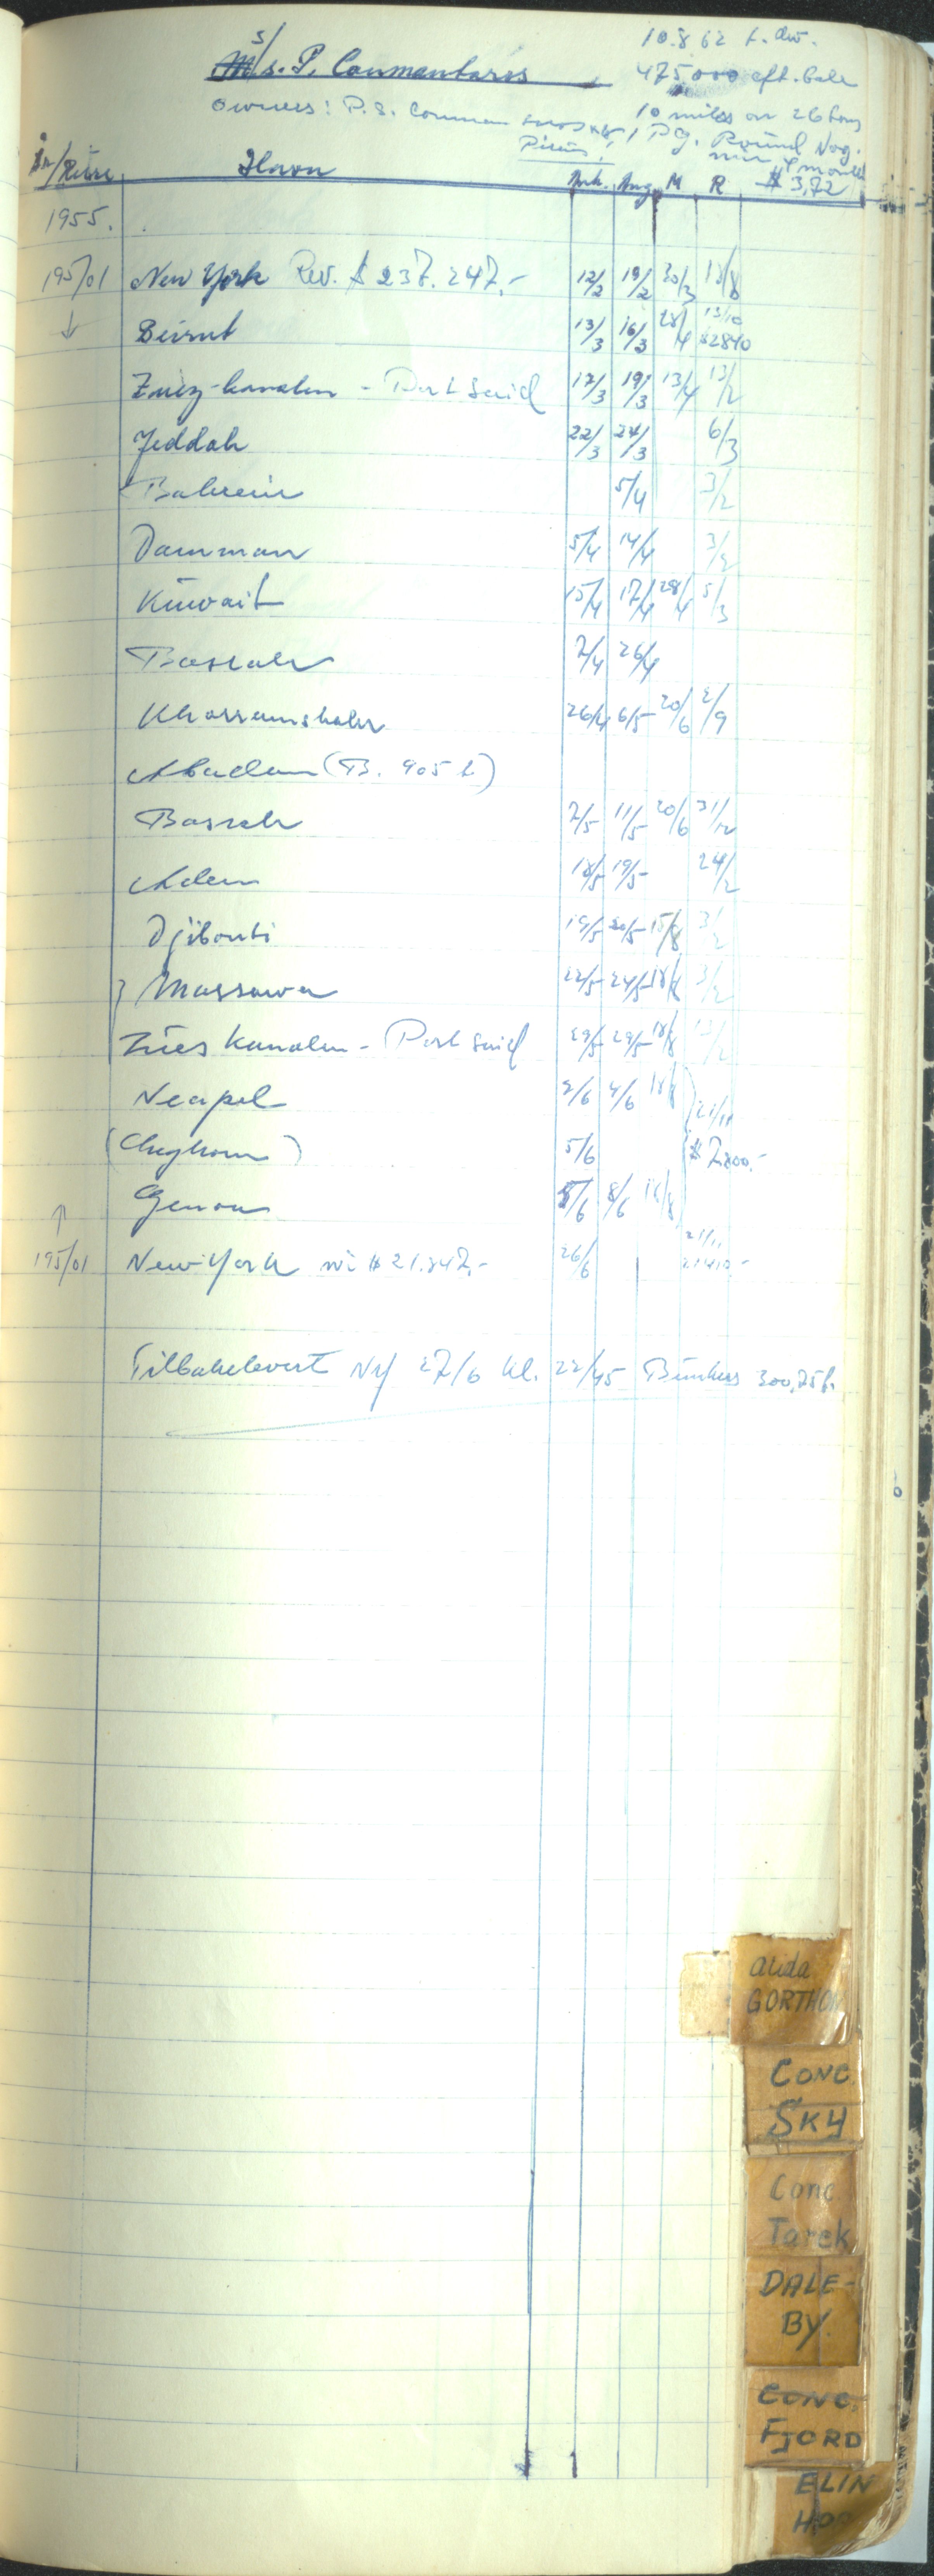 S/ 10.862 t. dw.
M/s. P. Coumantaros 475.000 cft. bale
Owners: P. S. Couman 10 miles on 26 tons
Piræus, 1 Pg. Round Voy.
År/Reise Havn Ank. Avg M R $ 3,72
1955.
195/01 New York Rev. $ 237.247,- 12/2 19/2 20/3 18/8
↓ Beirut 13/3 16/3 28/4 13/10 $2840
Zuez-kanalen - Port Said 17/3 19/3 13/4 13/2
Jeddah 22/3 24/3 6/3
Bahrein 5/4 3/2
Damman 5/4 14/4 3/2
Kuwait 15/4 17/4 28/4 5/3
Basrah 7/4 26/4
Khorramshahr 26/4 6/5 20/6 2/9
Abadan (B. 905 t)
Basrah 7/5 11/5 20/6 31/12
Aden 18/5 19/5 24/2
Djibouti 19/5 20/5 15/8 3/2
Massawa 22/5 24/5 18/8 3/2
Zues Kanalen - Port Said 29/5 29/5 18/8
Neapel 2/6 4/6 18/8 21/11
(Leghorn) 5/6 $ 7.200,-
↑ Genoa 5/6 8/6 18/8
195/01 New-York 26/6 21/11
Tilbakelevert NY 27/6 kl. 22/45 Bunkers 300,75 t.
Alida
GORTHON
CONC
SKY
Conc.
Tarek
DALE-
BY.
CONC.
FJORD
ELIN